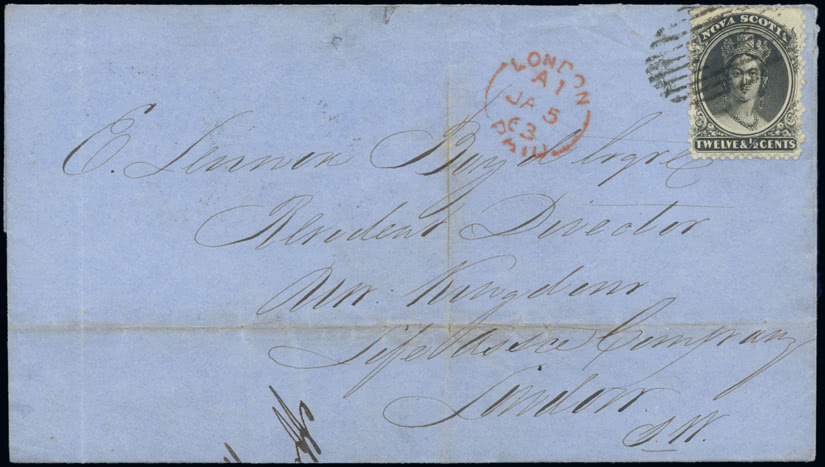 NOVA SCOTIA
TWELVE & ½ CENTS
LONDON
A 1
JA 5
63
PAID
E. Lennox Boyd Esqre
Resident Director
Unt. Kingdom
Life Assce Company
London
S.W.